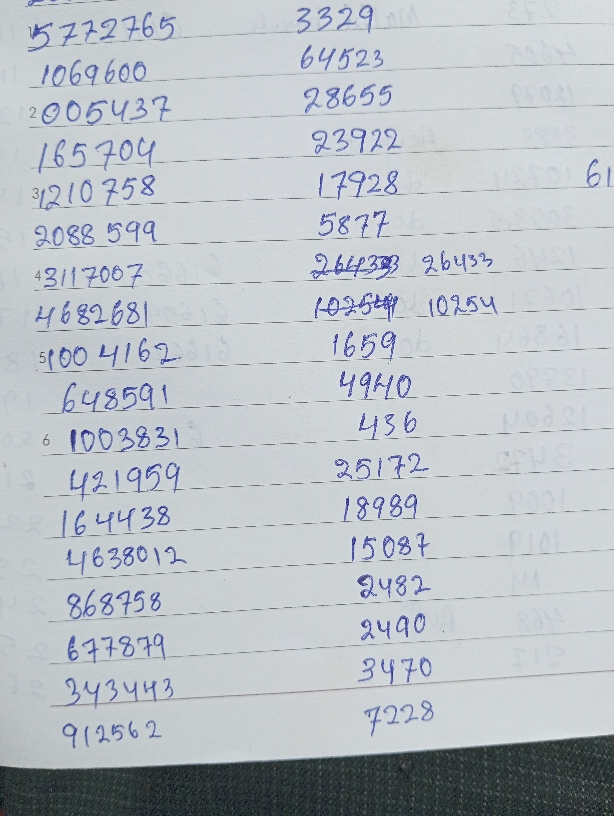 5772765 3329
1069600 64523
2 005437 28655
165704 23922
3 1210758 17928 61
2088599 5877
4 3117007 26433 26433
4682681 10254 10254
5 1004162 1659
648591 4940
6 1003831 436
421959 25172
164438 18989
4638012 15087
868758 2482
677879 2490
343443 3470
912562 7228